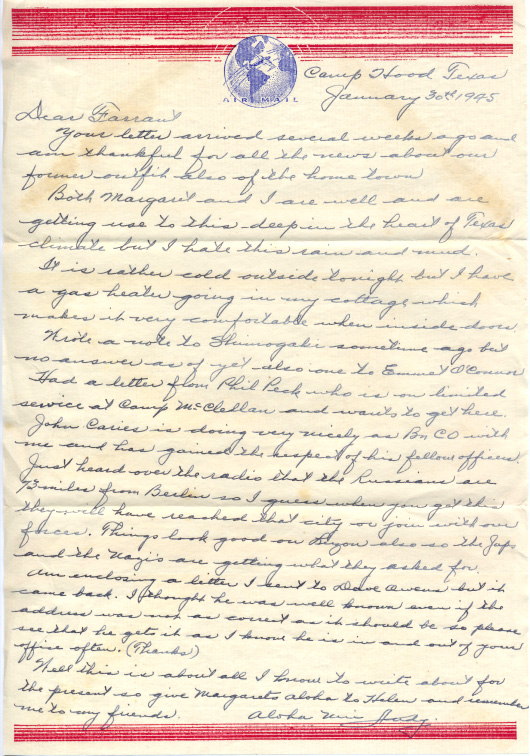 AIR MAIL
Camp Hood Texas
January 30th 1945
Dear Farrant
Your letter arrived several weeks ago and
am thankful for all the news about our
former outfit also of the home town
Both Margaret and I are well and are
getting use to this deep in the heart of Texas
climate but I hate this rain and mud.
It is rather cold outside tonight but I have
a gas heater going in my cottage which
makes it very comfortable when inside doors
Wrote a note to sometime ago but
no answer as of yet also one to Emmet O'Connor
Had a letter from Phil Peck who is on limited
service at Camp McClellan and wants to get here.
John Caries is doing very nicely as Bn CO with
me and has gained the respect of his fellow officers.
Just heard over the radio that the Russians are
73 miles from Berlin so I guess when you get this
they will have reached that city or join with our
forces. Things look good on Luzon also so the Japs
and the Nazis are getting what they asked for.
Am enclosing a letter I sent to Dave Owens but it
came back. I thought he was well known even if the
address was not as correct as it should be so please
see that he gets it as I know he is in and out of your
office often. (Thanks)
Well this is about all I know to write about for
the present so give Margarets aloha to Helen and remember
me to my friends. Aloha